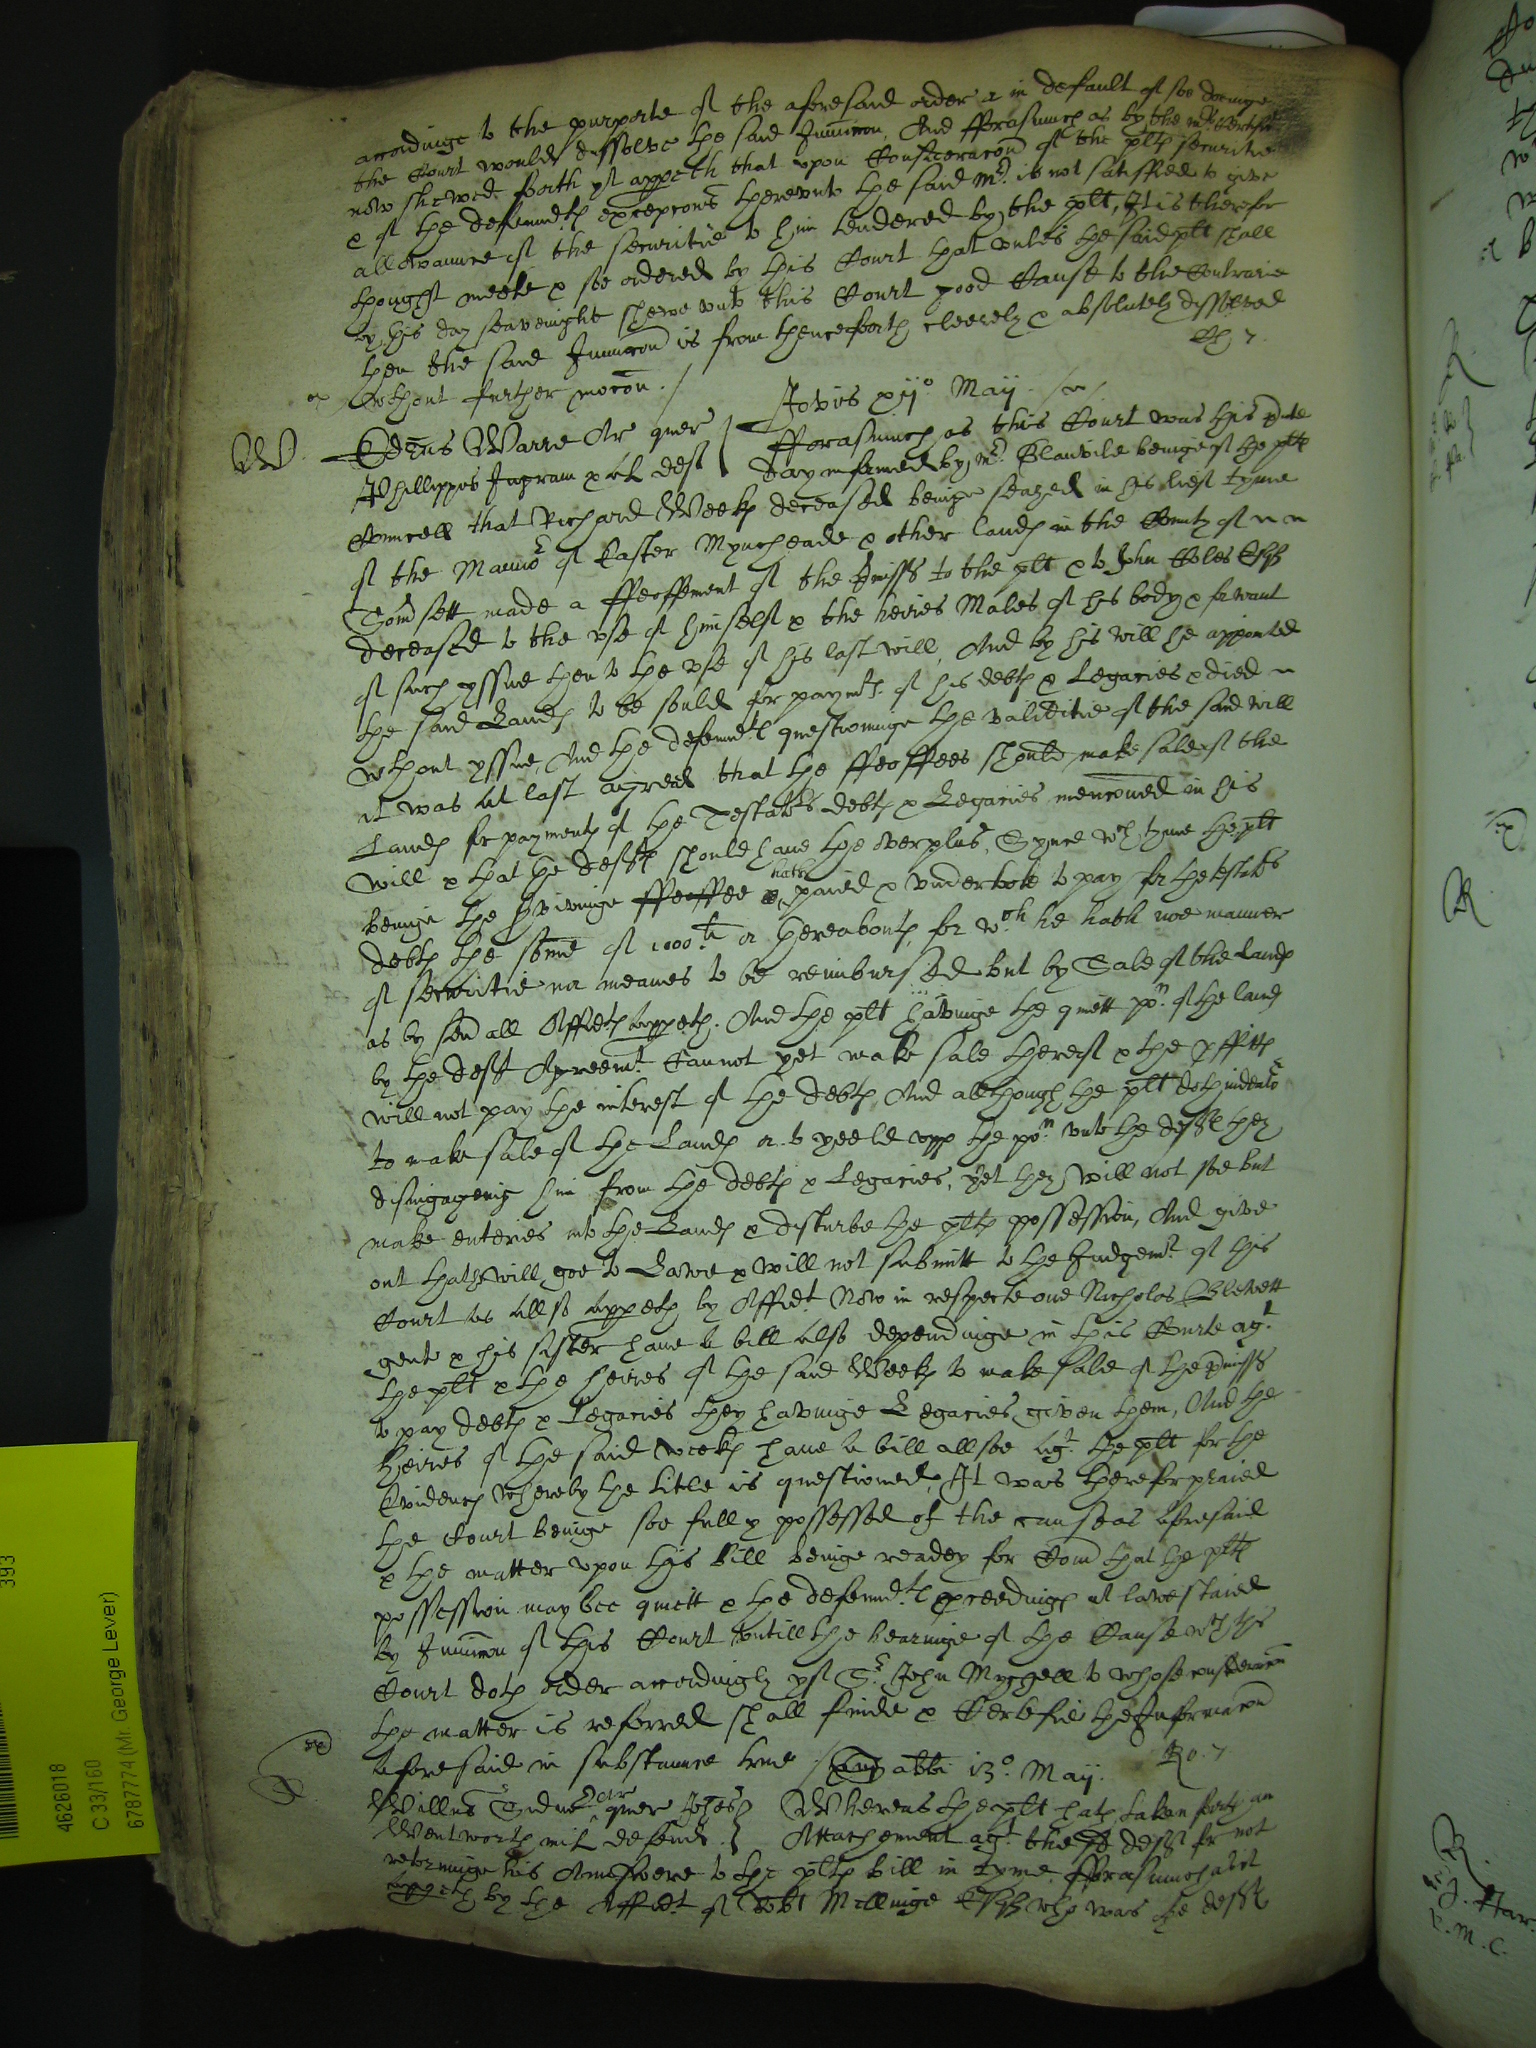 accordinge to the purporte of the aforesaid order & in default of soe doeinge
the Court would dissolve the said Iniuncon, And fforasmuch as by the mrs Certificat
now shewed foorth yt appeth that vpon Consideracon of the plts securitie
& of the defendts excepcons therevnto the said mr. is not satisfied to give
allowaunce of the securitie to him tendered by the plt, It is therefore
thought meete & soe ordered by this Court that vnles the said plt shall
by this day seavenight shewe vnto this Court good Cause to the Contrarie
then the said Iniuncon is from thenceforth cleerely & absolutely dissolved
wthout further mocon./
Jovis xijo Maij
W
Edrus Warre Ar quer
Phillippus Ingram & al deft
fforasmuch as this Court was this pnte
day informed by mr. Glanvile beinge of the plts
Councell that Richard Weeks deceased beinge seazed in his lief tyme
of the Mannor of Easter Myncheade & other lands in the County of
Somsett made a ffeoffement of the pmisss to the plt & to John Coles Esqr
deceased to the vse of himself & the heires Males of his body & for want
of such yssue then to the vse of his last will, And by his will he appointed
the said Lands to be sould for paymt. of his debts & Legacies & died
wthout yssue, And the defendts questioninge the validitie of the said will
it was at last agreed that the ffeoffees should make sale of the
Lands for payments of the Testators debts & Legacies mencioned in his
will & that the defts should have the overplus, Synce wch tyme the plt
beinge the survivinge ffeoffee hath paied & vndertooke to pay for the testators
debts the somme of 1000 li or thereabouts, for wch he hath noe manner
of securitie nor meanes to be reimbursed but by Sale of the Lands
as by sevall Affidts appeth. And the plt havinge the quiett pon. of the lands
by the defts Agreemt. Cannot yet make sale thereof & the pffitts
will not pay the interest of the debts And although the plt doth indevor
to make sale of the Lands or to yeeld vpp the pon. vnto the defts they
disingageing him from the debts & Legacies, yet they will not soe but
make entries into the Lands & disturbe the plts possession, And give
out that they will goe to Lawe & will not submitt to the Iudgemt. of this
Court as allso appeth by Affidt. Now in respecte one Nicholas Blewett
gent & his sister have a bill also dependinge in this Courte agt.
the plt & the heires of the said Weeks to make sale of the pmisss
to pay debts & Legacies they havinge Legacies given them, And the
heires of the said weeks have a bill allsoe agt. the plt for the
Evidences whereby the title is questioned, It was therefore praied
the Court beinge soe fully possessed of the cause as aforesaid
& the matter vpon this bill beinge readey for Com that the plts
possession may bee quiett & the defendts. pceedings at lawe staied
by Iniuncon of this Court vntill the hearinge of the Cause wch this
Court doth order accordingly yf Sr. John Mychell to whose consideracon
the matter is referred shall finde & Certefie the Informacon
aforesaid in substaunce true
Sabbi 13o. Maij.
Ro.
Willus quer Johes
Wentworth mil defend.
Whereas the plt hath taken forth an
Attachement agt. the deft for not
retorninge his Answere to the plts bill in tyme, fforasmuch as it
appeth by the Affidt. of Robt Millinge Esqr who was the defts
393
4626018
C 33/160
6787774 (Mr. George Lever)